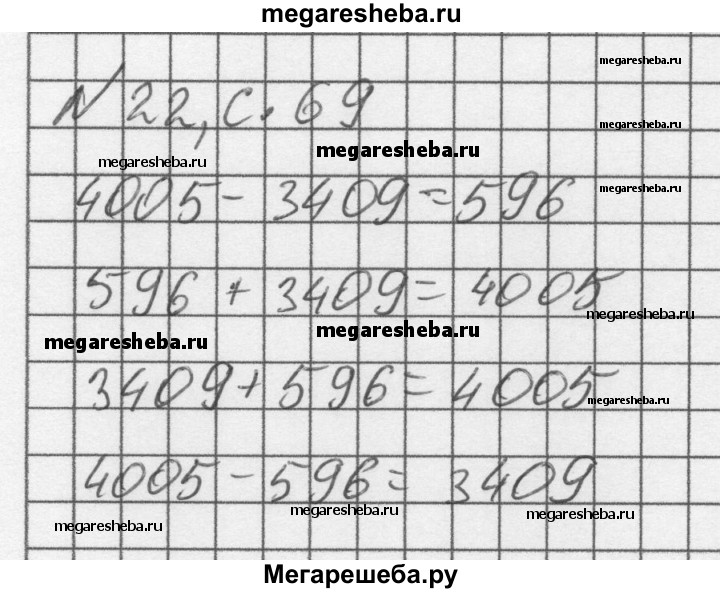 megaresheba.ru
megaresheba.ru
№ 22, с. 69
megaresheba.ru
megaresheba.ru
megaresheba.ru
4005 - 3409 = 596
megaresheba.ru
596 + 3409 = 4005
megaresheba.ru
megaresheba.ru
megaresheba.ru
3409 + 596 = 4005
megaresheba.ru
4005 - 596 = 3409
megaresheba.ru
megaresheba.ru
megaresheba.ru
Мегарешеба.ру